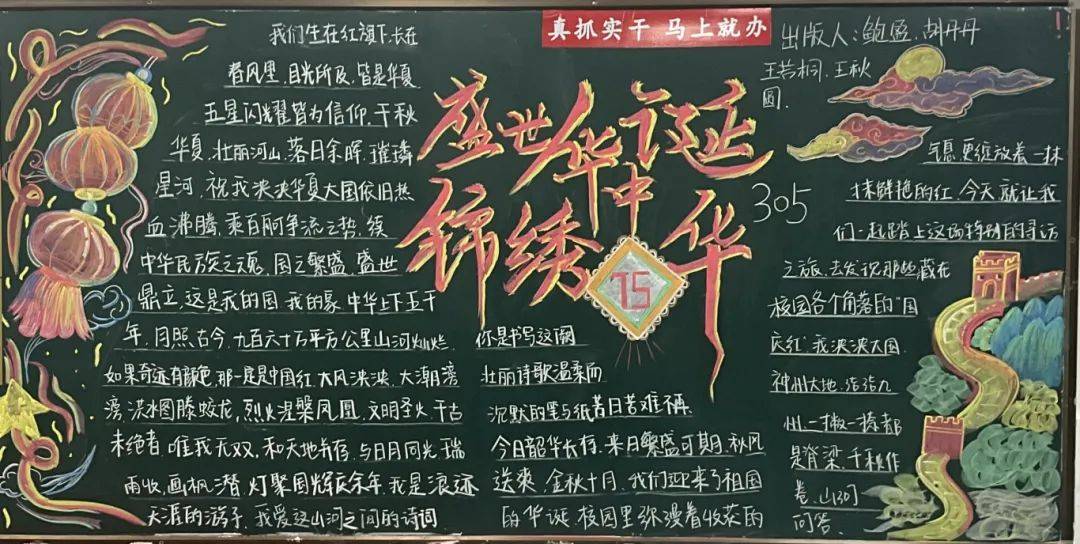 真抓实干 马上就办
出版人:鲍盈、胡丹丹
王若桐、王秋
圆、
盛世华诞
锦绣中华
75
305
我们生在红旗下,长在
春风里,目光所及,皆是华夏
五星闪耀皆为信仰,千秋
华夏,壮丽河山,落日余晖,璀璨
星河,祝我泱泱华夏大国依旧热
血沸腾,乘百舸争流之势,续
中华民族之魂,国之繁盛,盛世
鼎立,这是我的国,我的家,中华上下五千
年,月照古今,九百六十万平方公里山河灿烂
如果奇迹有颜色,那一定是中国红,大风泱泱,大潮滂
滂,洪水图腾蛟龙,烈火涅槃凤凰,文明圣火,千古
未绝者,唯我无双,和天地并存,与日月同光,瑞
雨收,画枫潜,灯聚国辉庆余年,我是浪迹
天涯的游子,我爱这山河之间的诗词
你是书写这阙
壮丽诗歌温柔而
沉默的墨与纸,昔日苦难不再
今日韶华长存,来日繁盛可期,秋风
送爽,金秋十月,我们迎来了祖国
的华诞,校园里弥漫着收获的
气息,更绽放着一抹
抹鲜艳的红,今天,就让我
们一起踏上这场特别的寻访
之旅,去发现那些藏在
校园各个角落的"国
庆红",我泱泱大国,
神州大地,浩浩九
州,一撇一捺都
是脊梁,千秋作
卷,山河
问答。